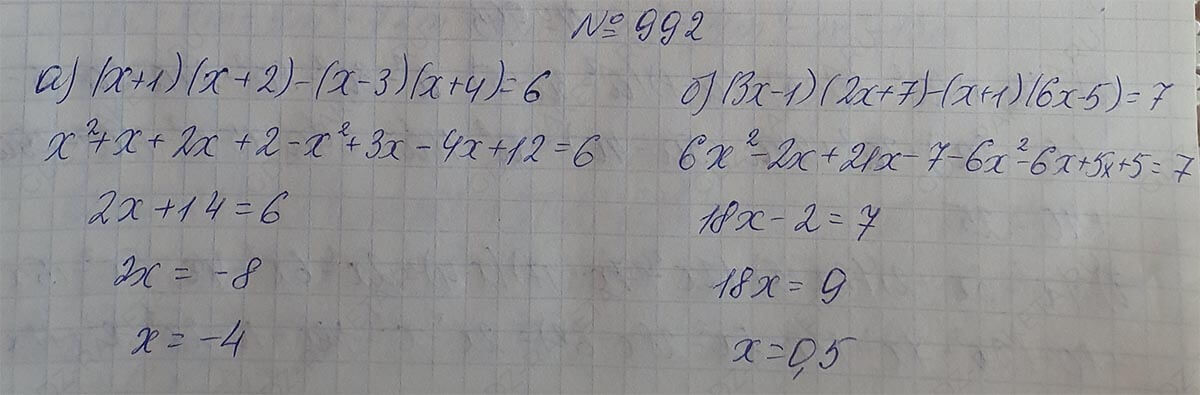 № 992
а) (x+1)(x+2)-(x-3)(x+4)=6
x²+x+2x+2-x²+3x-4x+12=6
2x+14=6
2x=-8
x=-4
б) (3x-1)(2x+7)-(x+1)(6x-5)=7
6x²-2x+21x-7-6x²-6x+5x+5=7
18x-2=7
18x=9
x=0,5